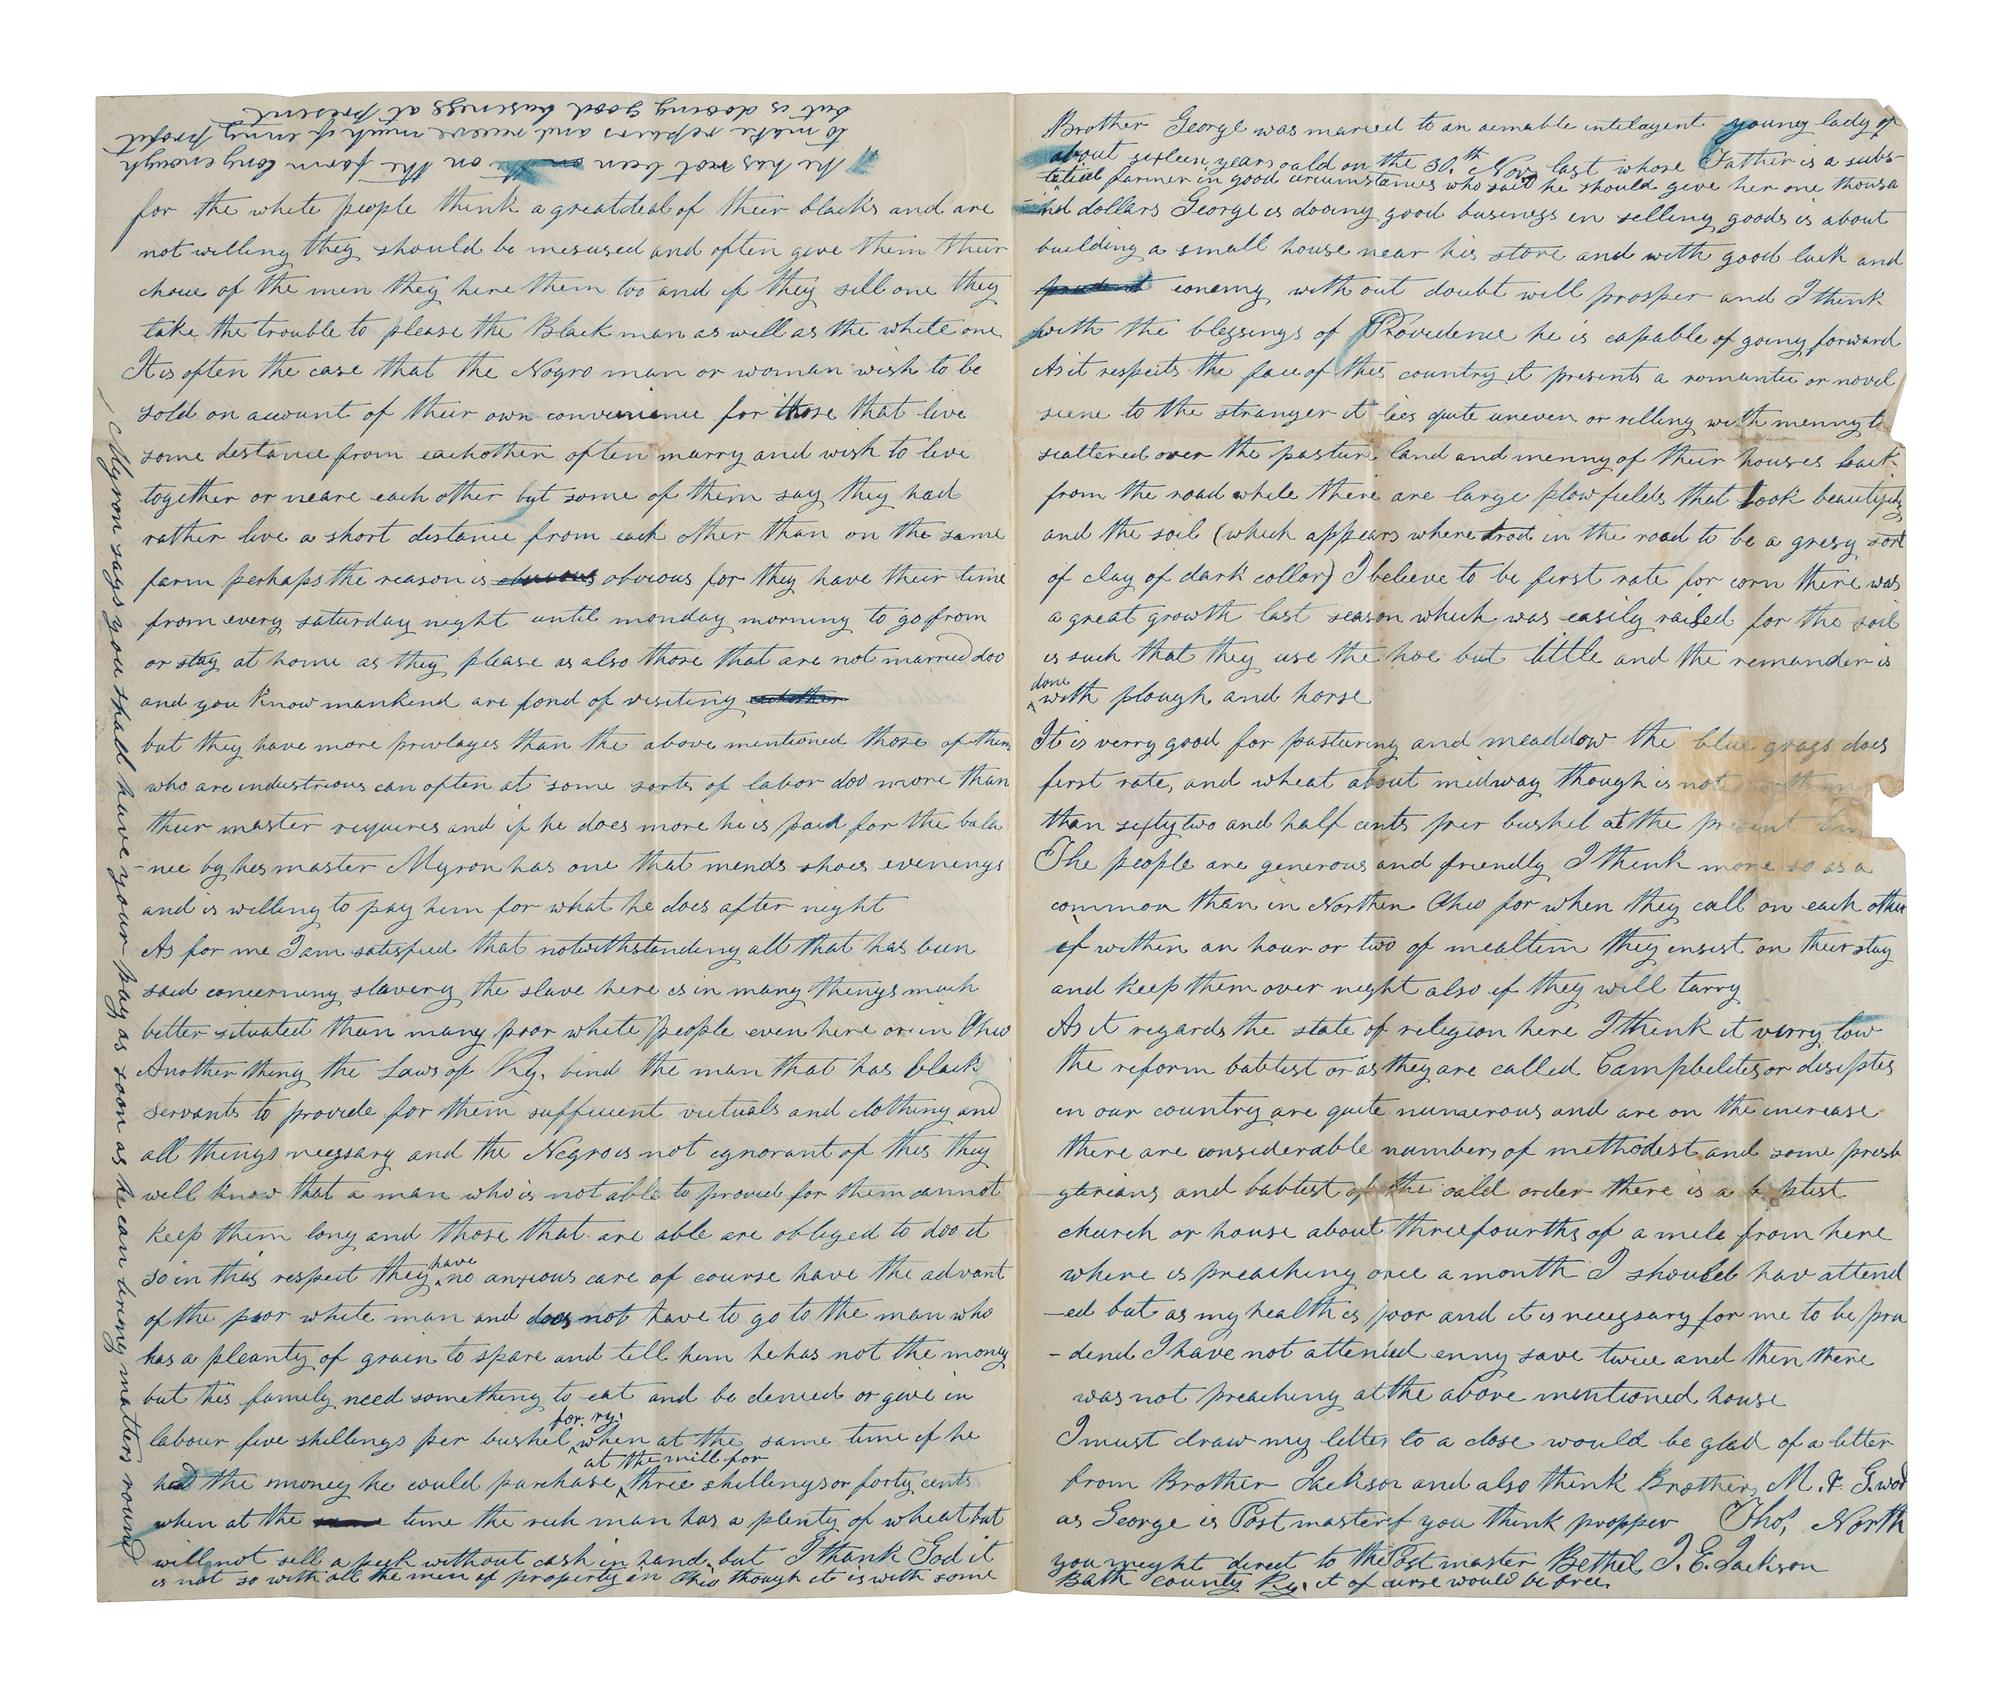 " he has not been on the farm long enough
to make repairs and receive much if enny profit
but is dooing good business at present
for the white people think a great deal of their blacks and are
not willing they should be mesused and often give them their
choice of the men they hire them too and if they sell one they
take the trouble to please the Black man as well as the white one
It is often the case that the Negro man or woman wish to be
sold on account of their own convenience for those that live
some distance from eachother often marry and wish to live
together or neare each other but some of them say they had
rather live a short distance from each other than on the same
farm perhaps the reason is obvious for they have their time
from every saturday night until monday morning to go from
or stay at home as they please as also those that are not married doo
and you know mankind are fond of visiting eachother
but they have more privlages than the above mentioned those of them
who are industrious can often at some sorts of labor doo more than
their master requires and if he does more he is paid for the bala
-nce by his master Myron has one that mends shoes evenings
and is willing to pay him for what he does after night
As for me I am satisfied that notwithstanding all that has been
said concerning slavery the slave here is in many things much
better situated than many poor white people even here or in Ohio
Another thing the Laws of Ky. bind the man that has black
servants to provide for them sufficient victuals and clothing and
all things necessary and the Negro is not ignorant of this they
well know that a man who is not able to provid for them cannot
keep them long and those that are able are obliged to doo it
so in this respect they have no anxious care of course have the advant
of the poor white man and does not have to go to the man who
has a pleanty of grain to spare and tell him he has not the money
but his family need something to eat and be denied or give in
labour five shillings per bushel for ry. when at the same time if he
had the money he could purchase at the mill for three shillings or forty cents
when at the same time the rich man has a plenty of wheat but
will not sell a peck without cash in hand. but I thank God it
is not so with all the men of property in Ohio though it is with some
Myron says you shall have your pay as soon as he can bring matters round
Brother George was maried to an aimable intilagent young lady of
about sixteen years oald on the 30.th Nov. last whose Father is a subs-
tatial farmer in good circumstances who said he should give her one thousa
-nd dollars George is dooing good business in selling goods is about
building a small house near his store and with good luck and
econemy without doubt will prosper and I think
with the blessings of Providence he is capable of going forward
As it respects the face of this country it presents a romantic or novil
scene to the stranger it lies quite uneven or rilling with menny t
scattered over the pasture land and menny of their houses back
from the road while there are large plowfields that look beautifully
and the soil (which appears where trod in the road to be a gresy sort
of clay of dark collar) I believe to be first rate for corn there was
a great growth last season which was easily raised for the soil
is such that they use the hoe but little and the remander is
done with plough and horse
It is verry good for pasturing and meaddow the blue grass does
first rate, and wheat about midway though is not worth
than sixty two and half cents per bushel at the present
The people are generous and friendly I think more so as a
common than in Northen Ohio for when they call on each other
if within an hour or two of mealtim they insist on their stay
and keep them over night also if they will tarry
As it regards the state of religion here I think it verry low
the reform babtist or as they are called Campbelites or desiples
in our country are quite numerous and are on the increase
there are considerable numbers of methodist and some presb
-yterians and babtist of the oald order there is a b ptist
church or house about threefourths of a mile from here
where is preaching once a month I should hav attend
-ed but as my health is poor and it is necessary for me to be pru
-dend I have not attended enny save twice and then there
was not preaching at the above mentioned house
I must draw my letter to a close would be glad of a letter
from Brother Jackson and also think Brothers M. & G. wod
as George is Postmaster if you think propper Tho.s North
you meight direct to the Postmaster Bethel J. E. Jackson
Bath county Ky. it of curse would be free.